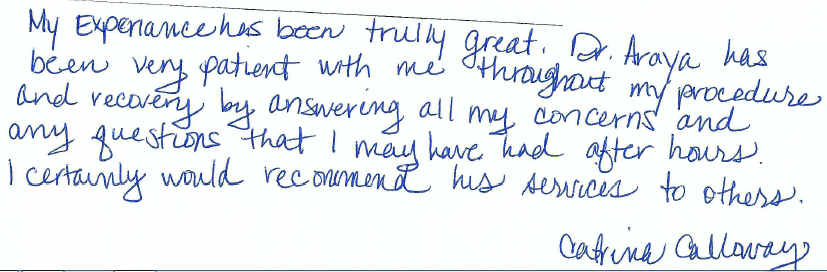 My Experiance has been trully great. Dr. Araya has
been very patient with me throughout my procedure
and recovery by answering all my concerns and
any questions that I may have had after hours.
I certainly would recommend his services to others.
Catrina Calloway